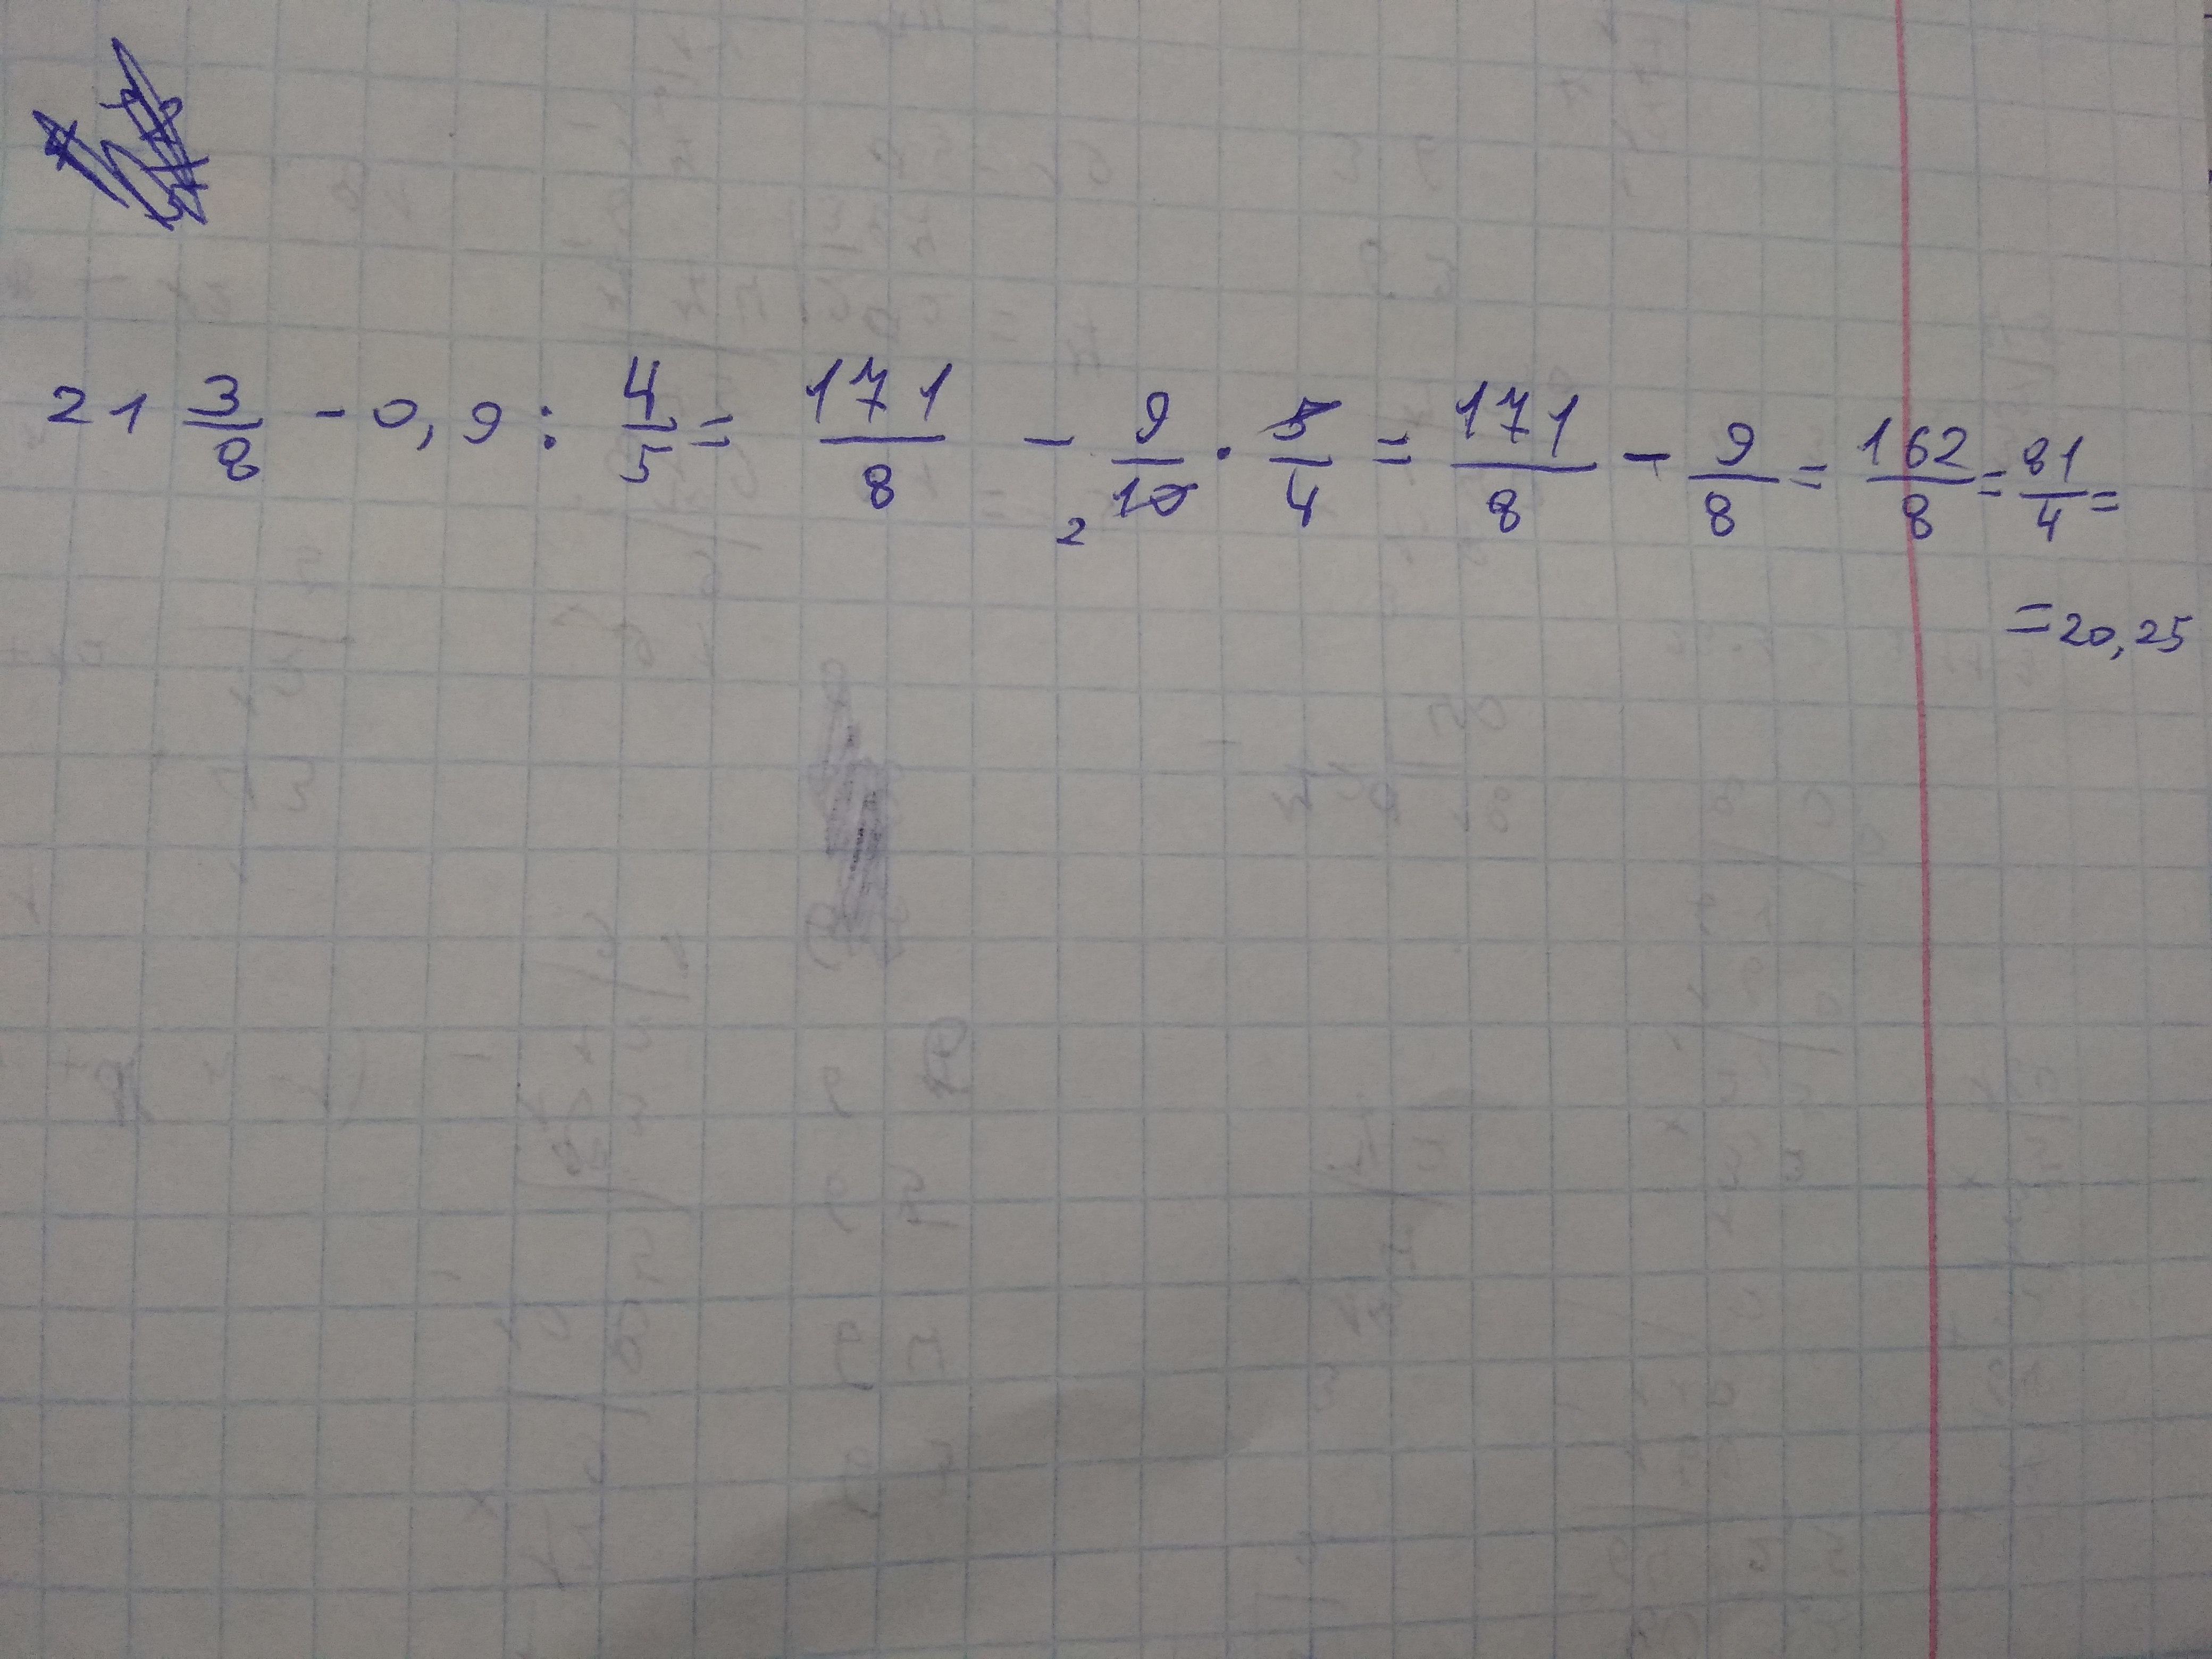 21 3/8 - 0,9 : 4/5 = 171/8 - 9/10 2 · 5/4 = 171/8 - 9/8 = 162/8 = 81/4 =
= 20,25